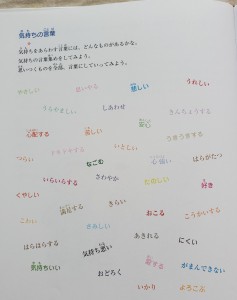 気持ちの言葉
気持ちをあらわす言葉には、どんなものがあるかな。
気持ちの言葉集めをしてみよう。
思いつくものを全部、言葉にしていってみよう。
やさしい
悲しい
うれしい
うらやましい
しあわせ
きんちょうする
心配する
苦しい
安心
うきうきする
つらい
いとしい
なごむ
心強い
はらがたつ
いらいらする
さわやか
たのしい
好き
くやしい
満足する
きらい
おこる
こうかいする
こわい
さみしい
あきれる
にくい
はらはらする
気持ち悪い
恋する
がまんできない
気持ちいい
おどろく
いかり
よろこぶ